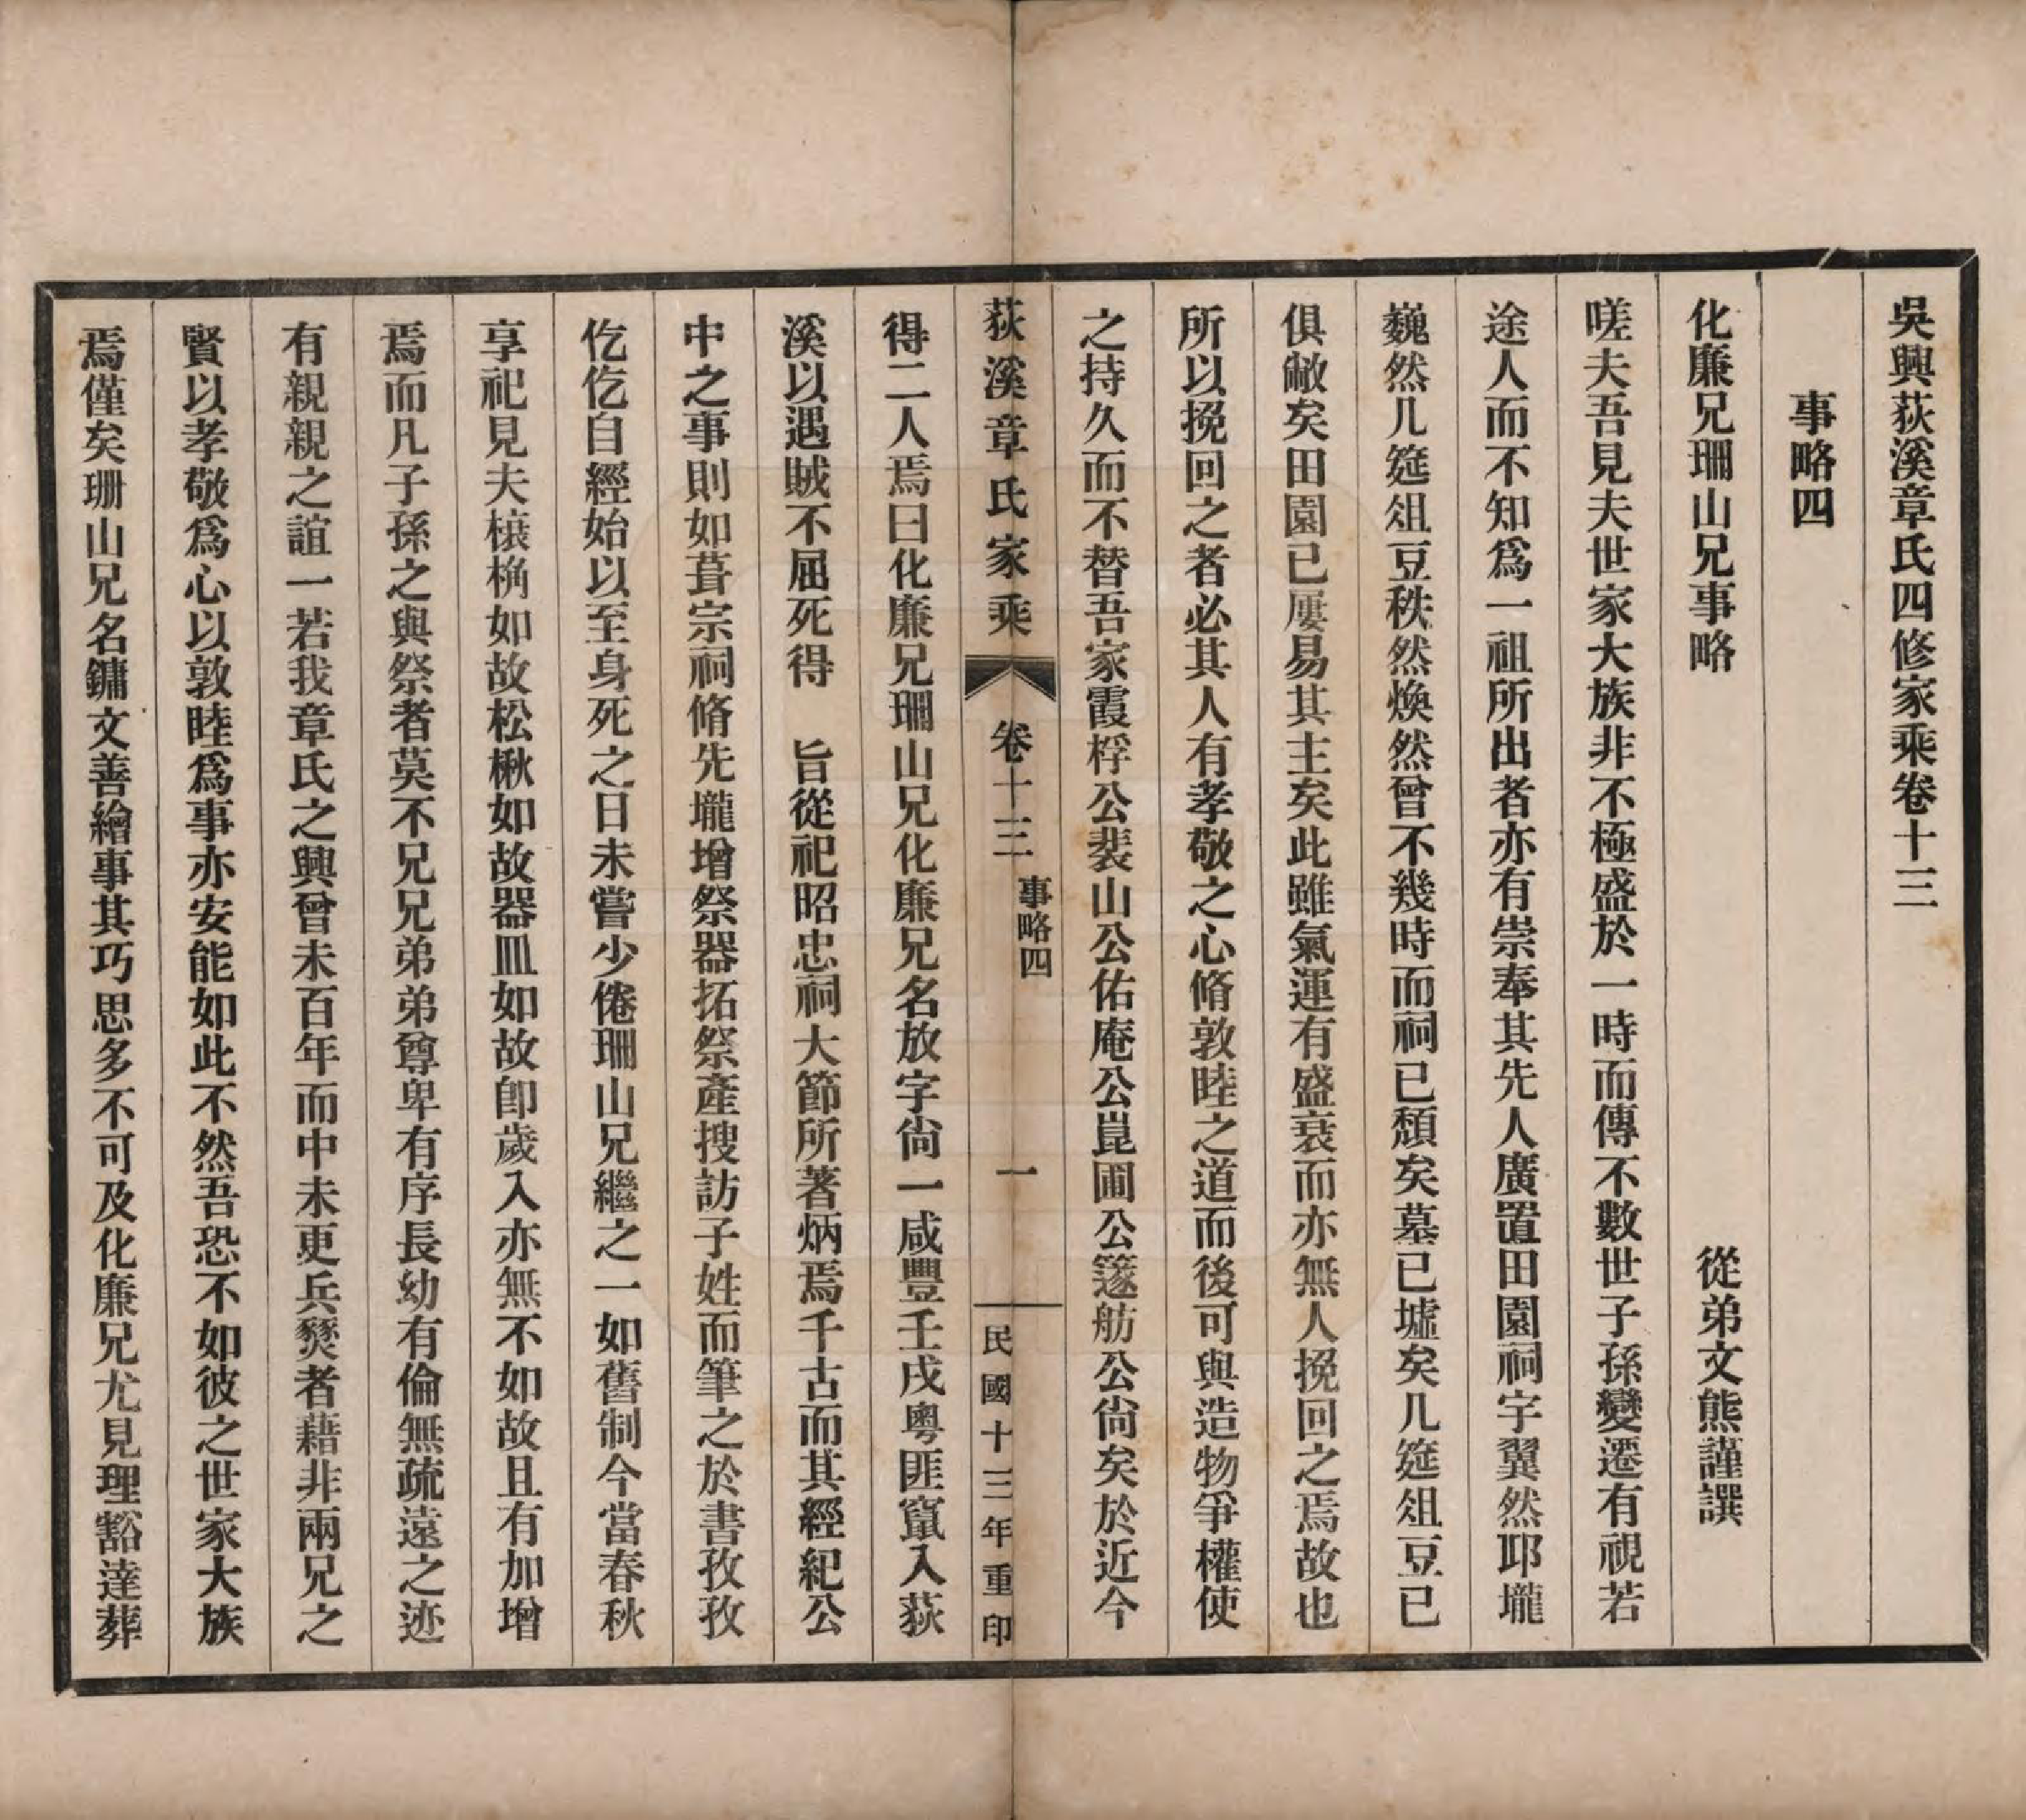 吳興荻溪章氏四修家乘卷十三
事略四
化廉兄珊山兄事略 從弟文熊謹譔
嗟夫吾見夫世家大族非不極盛於一時而傳不數世子孫變遷有視若
途人而不知爲一祖所出者亦有崇奉其先人廣置田園祠宇翼然邱壠
巍然几筵俎豆秩然煥然曾不幾時而祠已頹矣墓已墟矣几筵俎豆已
俱敝矣田園已屢易其主矣此雖氣運有盛衰而亦無人挽回之焉故也
所以挽回之者必其人有孝敬之心脩敦睦之道而後可與造物爭權使
之持久而不替吾家霞桴公裴山公佑庵公崑圃公籧舫公尙矣於近今
荻溪章氏家乘 卷十三 事略四 一 民國十三年重印
得二人焉曰化廉兄珊山兄化廉兄名放字尙一咸豐壬戌粵匪竄入荻
溪以遇賊不屈死得 旨從祀昭忠祠大節所著炳焉千古而其經紀公
中之事則如葺宗祠脩先壠增祭器拓祭產搜訪子姓而筆之於書孜孜
仡仡自經始以至身死之日未嘗少倦珊山兄繼之一如舊制今當春秋
享祀見夫榱桷如故松楸如故器皿如故卽歲入亦無不如故且有加增
焉而凡子孫之與祭者莫不兄兄弟弟尊卑有序長幼有倫無疏遠之迹
有親親之誼一若我章氏之興曾未百年而中未更兵燹者藉非兩兄之
賢以孝敬爲心以敦睦爲事亦安能如此不然吾恐不如彼之世家大族
焉僅矣珊山兄名鏞文善繪事其巧思多不可及化廉兄尤見理豁達葬